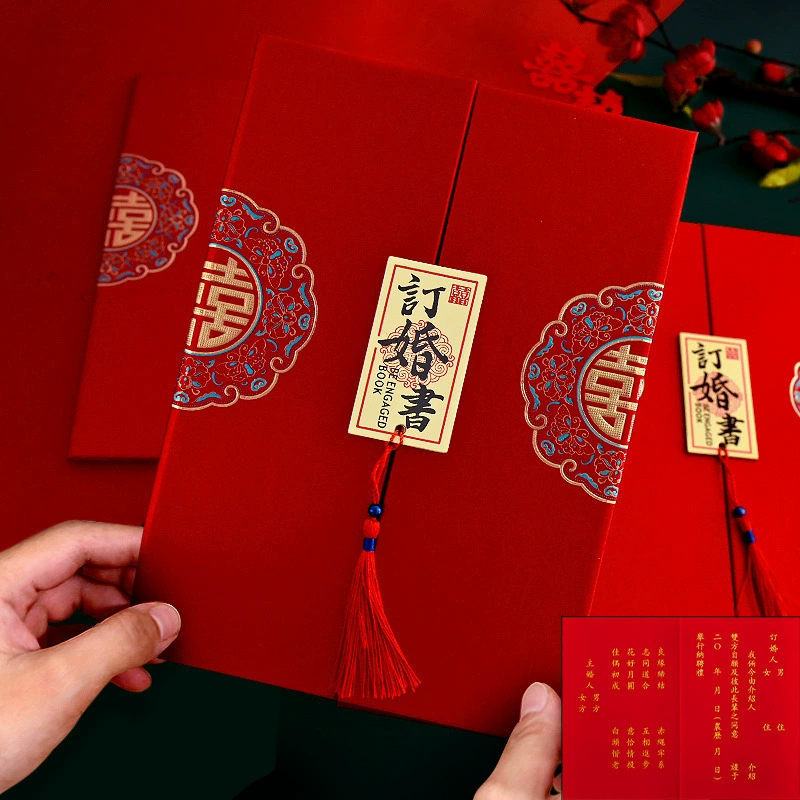 囍
囍
囍
囍
訂婚書
BE ENGAGED
BOOK
囍
囍
訂婚書
BE ENGAGED
BOOK
訂婚人 男 住
女 住
我倆今由介紹人 介紹
雙方自願及彼此長輩之同意 謹于
二〇 年 月 日(農曆 月 日)
舉行納聘禮
良緣締結 赤繩牢系
志同道合 互相進步
花好月圓 意恰情投
佳偶初成 白頭偕老
主婚人 男方
女方